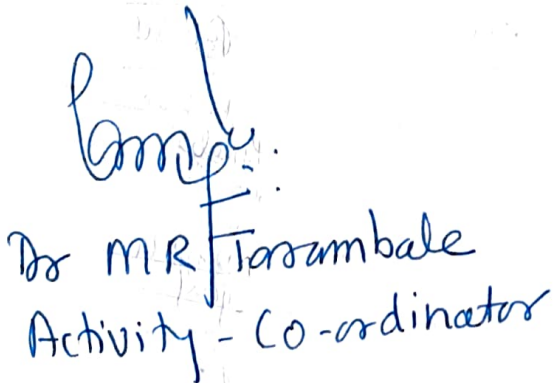 Dr MR Tarambale
Activity - Co-ordinator